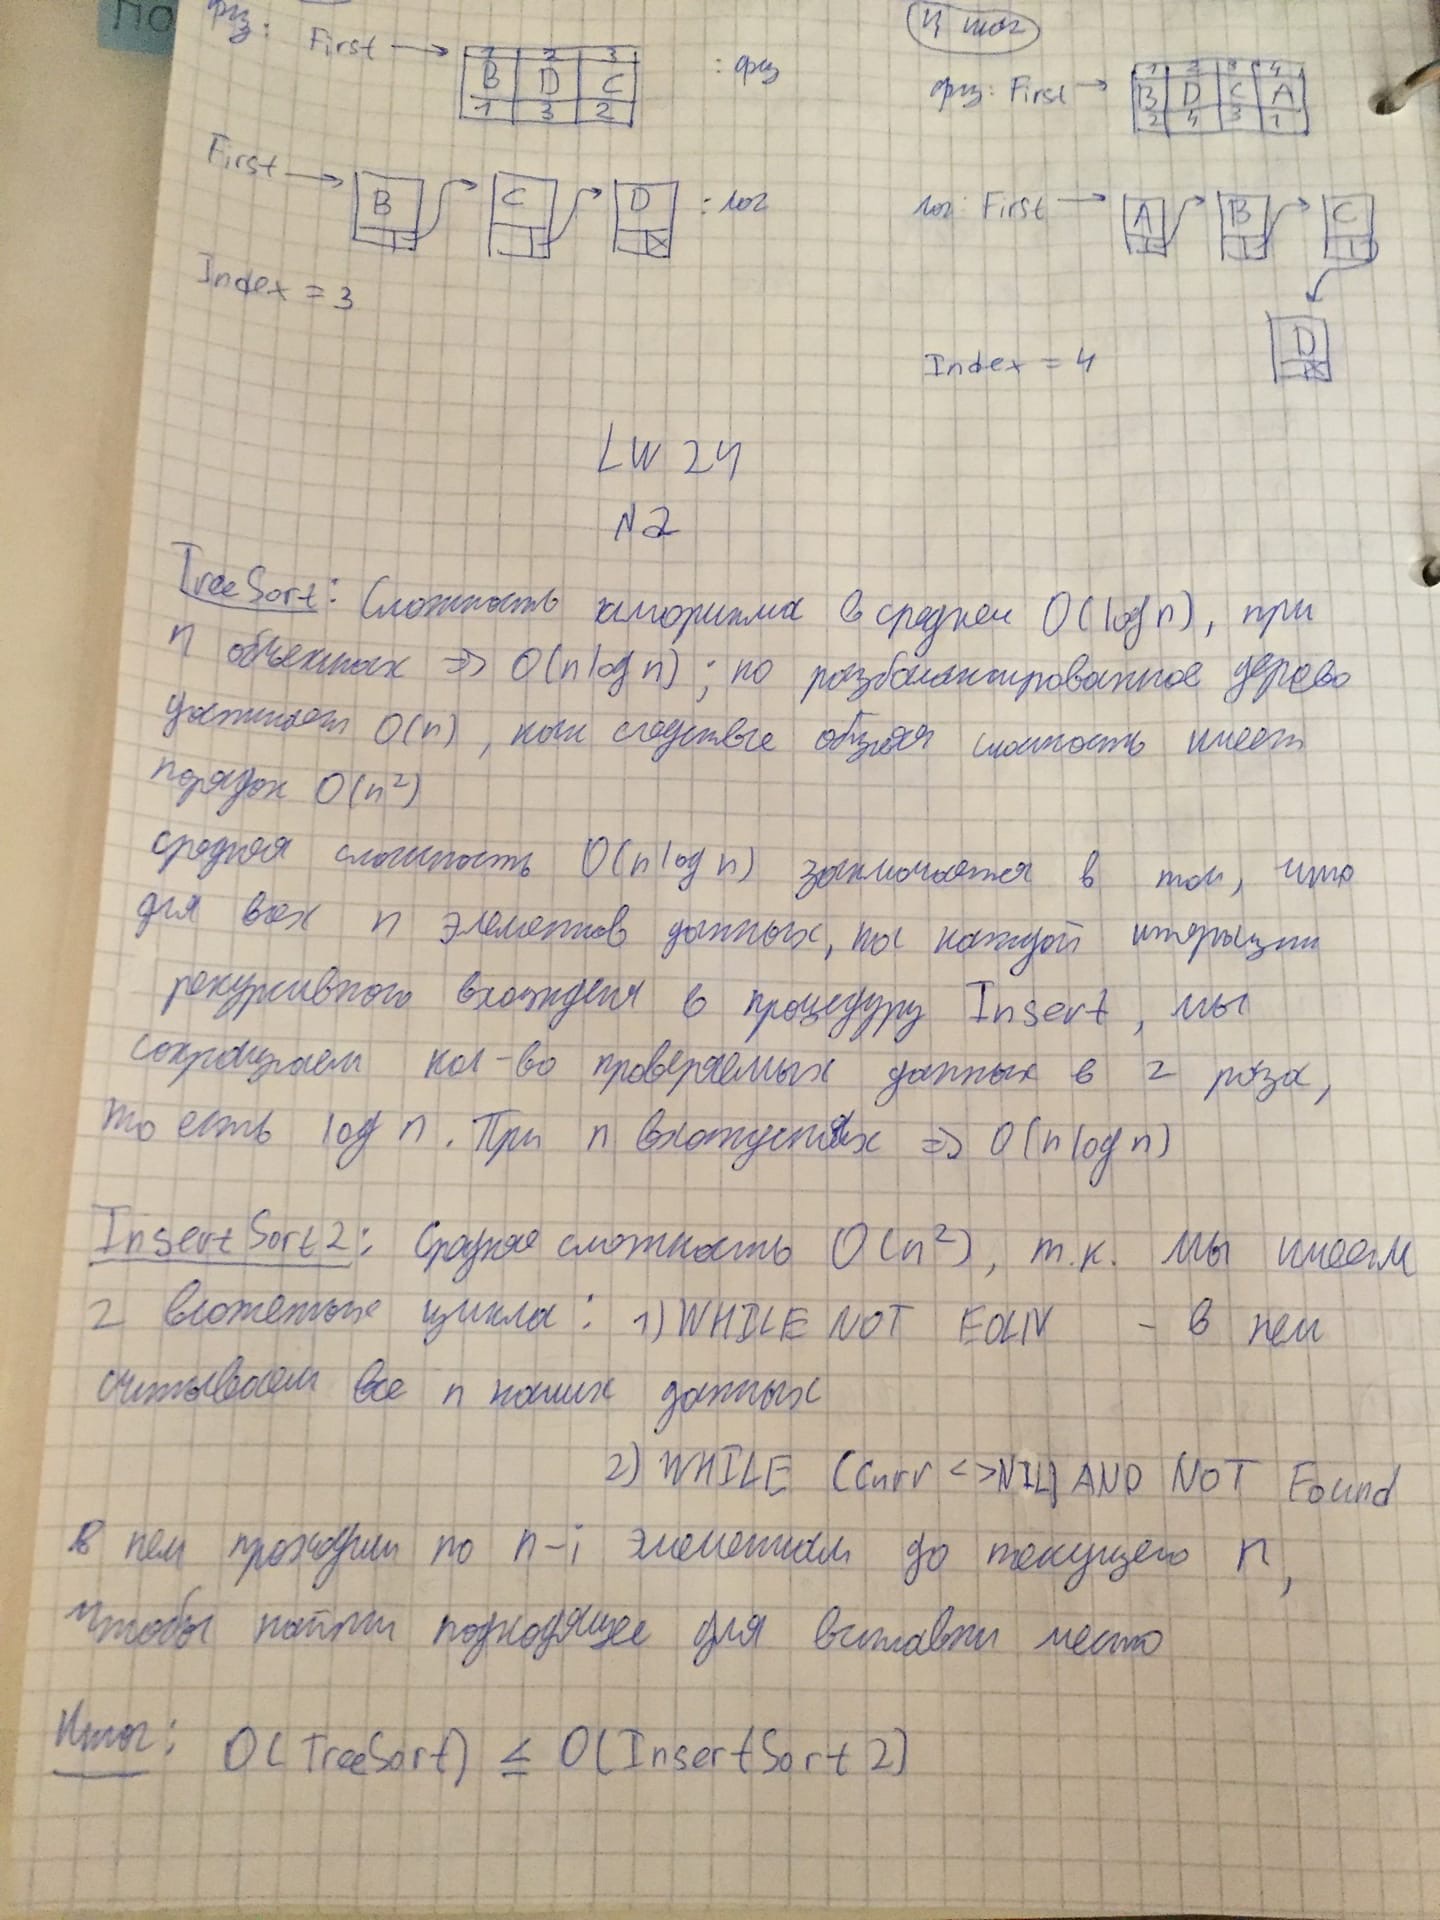 по
физ: First
1 2 3
B D C
1 3 2
: физ
First
B C D : лог
Index = 3
4 шаг
физ: First
1 2 3 4
B D C A
2 4 3 1
лог: First
A B C
D
Index = 4
LW 24
N2
TreeSort: Сложность алгоритма в среднем O(log n), при
n объектах => O(n log n); но разбалансированное дерево
достигает O(n), как следствие общая сложность имеет
порядок O(n²)
средняя сложность O(n log n) заключается в том, что
для всех n элементов данных, на каждой итерации
рекурсивного вхождения в процедуру Insert, мы
сокращаем кол-во проверяемых данных в 2 раза,
то есть log n. При n вхождениях => O(n log n)
InsertSort2: Средняя сложность O(n²), т.к. мы имеем
2 вложенные цикла: 1) WHILE NOT EOLN - в нем
считываем все n наших данных
2) WHILE (Curr <> NIL) AND NOT Found
в нем проходим по n-i элементам до текущего n,
чтобы найти подходящее для вставки место
Итог: O(TreeSort) ≤ O(InsertSort2)